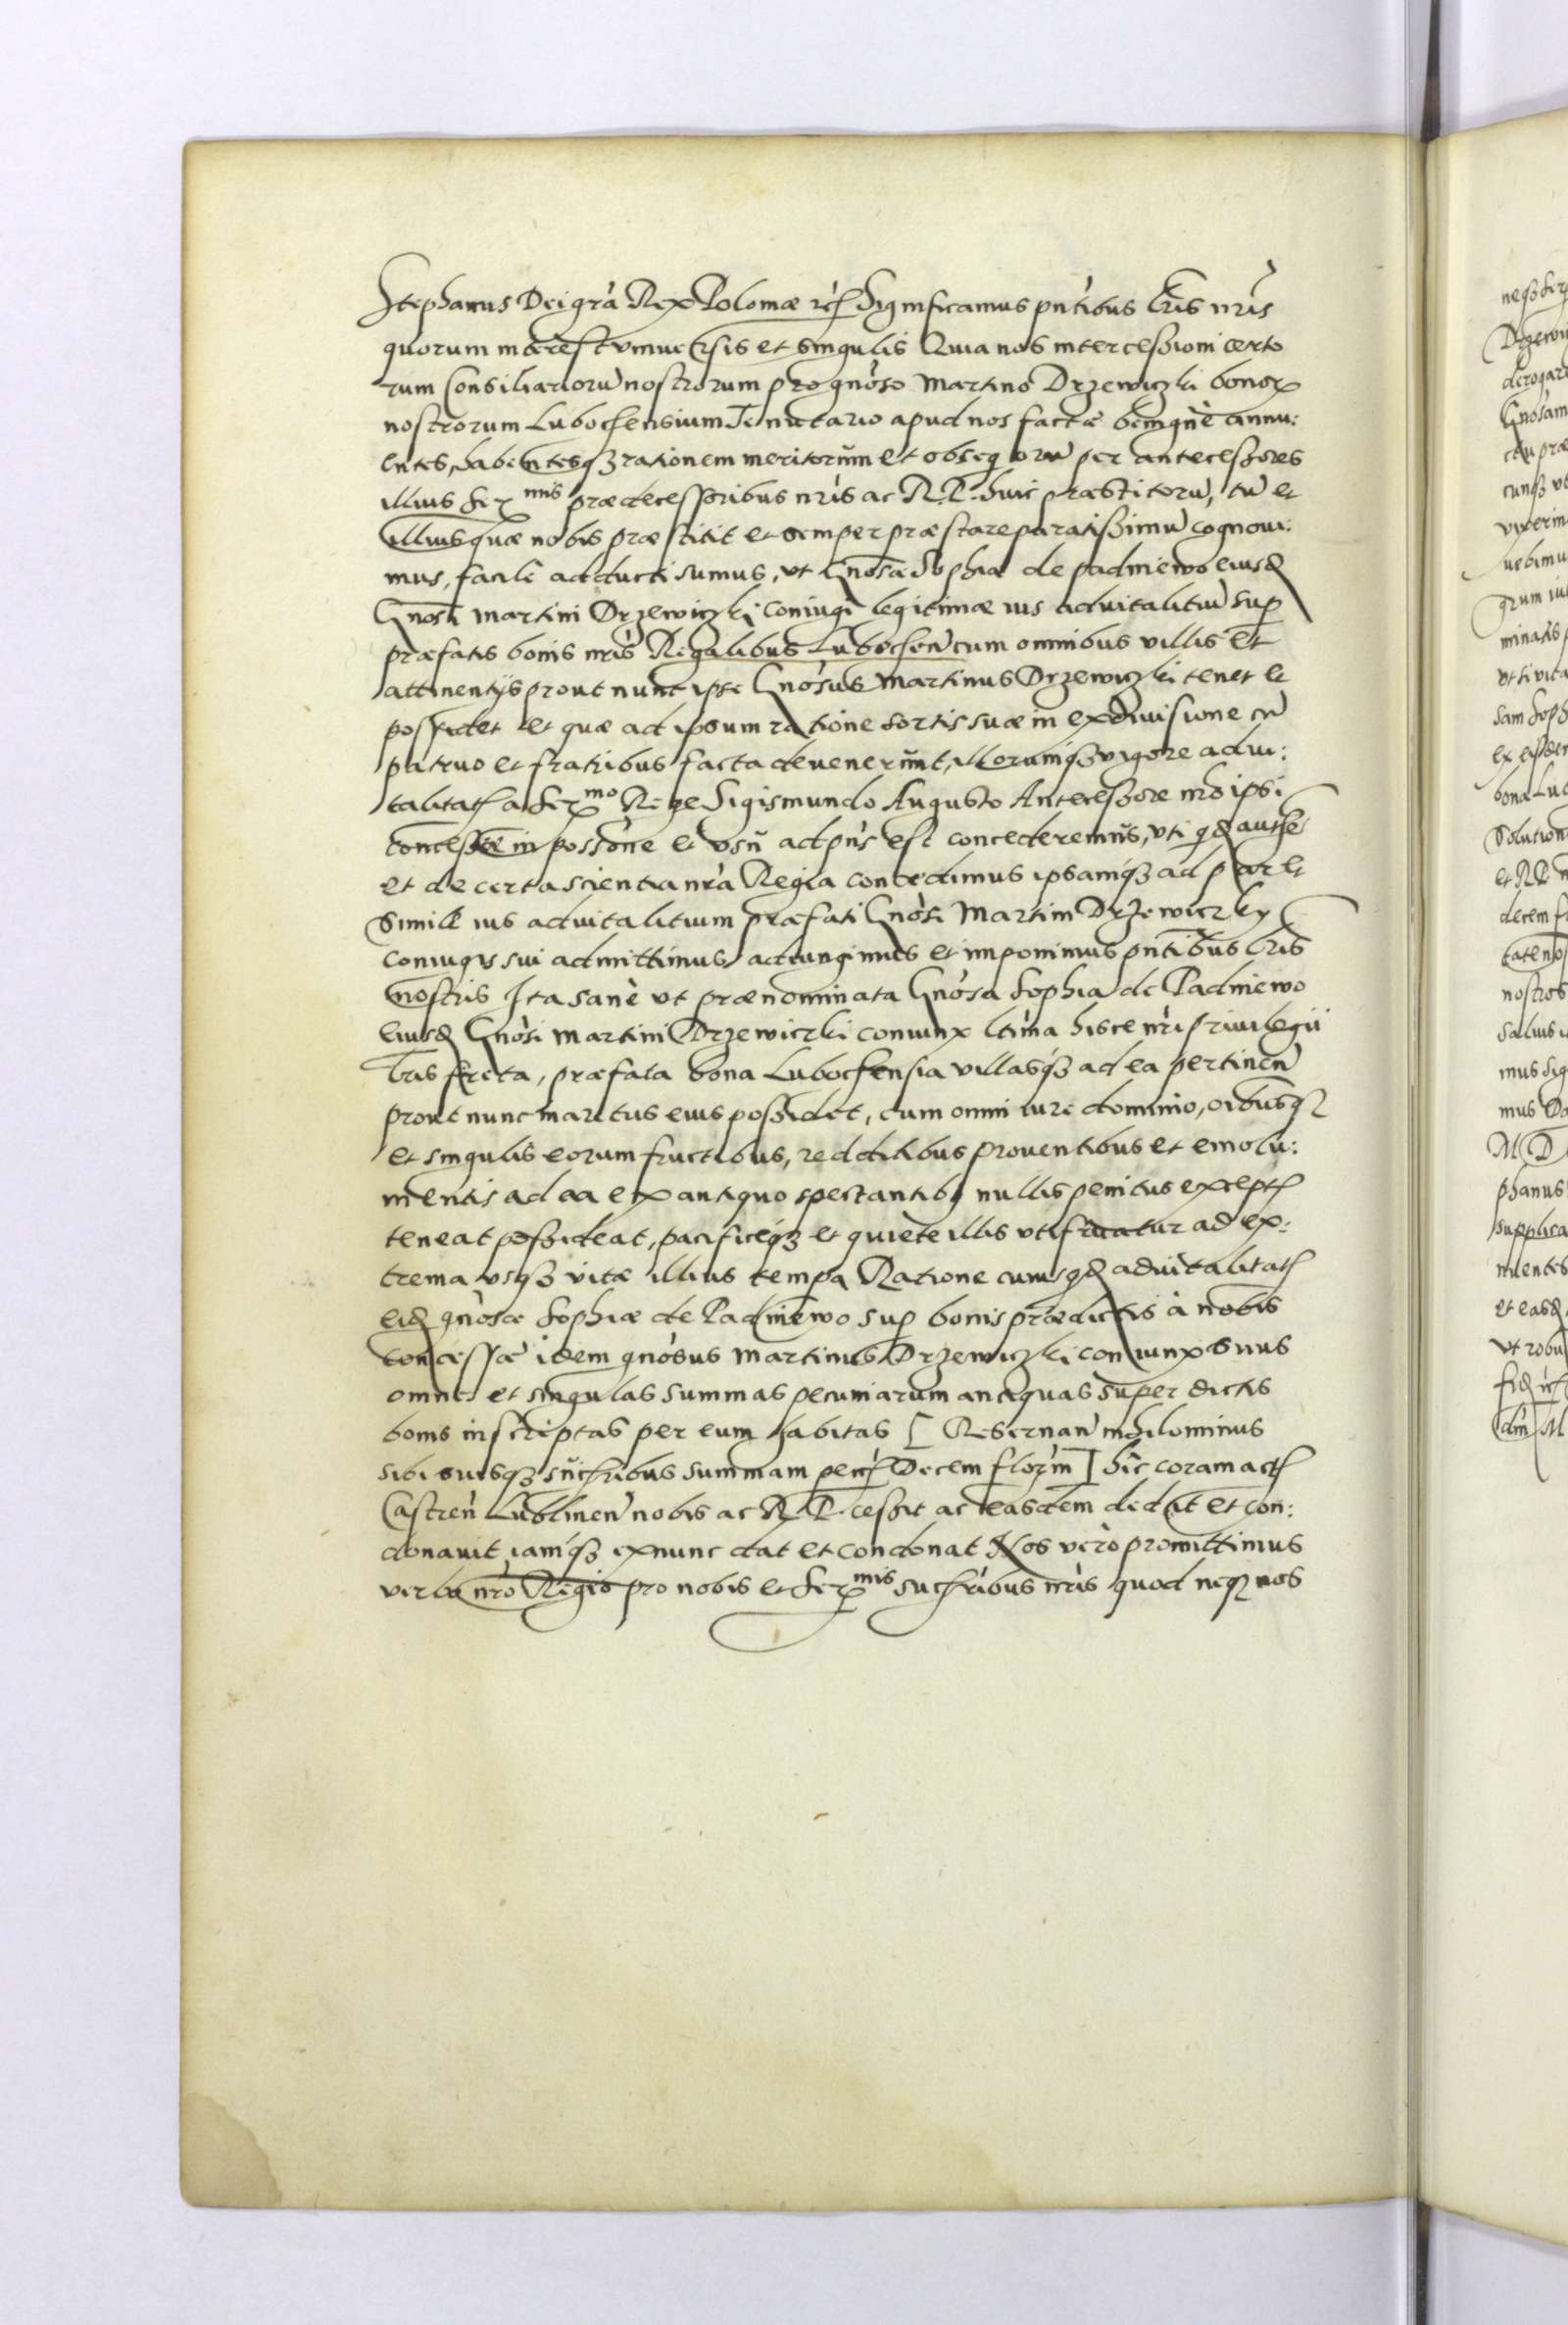 Stephanus Dei grà Rex Poloniæ etc̃ Significamus pñtibus Lr̃is nr̃is
quorum interest vniuersis et singulis Quia nos intercessioni certo
rum Consiliariorũ nostrorum pro gnòso Martino Drzewiczki bonorꝫ
nostrorum Lubochensium Tenutario apud nos factæ benignè annu:
entes, habentesqꝫ rationem meritorũm et obseq orũ per antecessores
illius Serᵐⁱˢ prædecessoribus nr̃is ac R.P. huic præstitorũ, tũ et
illius quæ nobis præstitit et semper præstare paratissimũ cognoui:
mus, facile adducti sumus, vt Gnosæ Sophiæ de Padniewo eiusd
Gnosi Martini Drzewiczki coniugi legitimæ ius aduitalitiũ sup
præfatis bonis nr̃is Regalibus Lubochen̄ cum omnibus villis et
attinentijs prout nunc ipse Gnòsus Martinus Drzewiczki tenet et
possidet et quæ ad ipsum ratione sortis suæ in ex diuisione cũ
patruo et fratribus facta deuenerũnt, illorumqꝫ vigore adui:
talitat̃ a Serᵐᵒ Rege Sigismundo Augusto Antecessore nr̃o ipsi
concessæ in possõne et vsũ ad pñs est concederemũs, vti qd authe
et de certa scientia nr̃a Regia concedimus ipsamqꝫ ad par et
Simile ius aduitalitium præfati Gnòsi Martini Drzewiczky
coniugis sui admittimus adiungimus et imponimus pñtibus Lr̃is
nostris Ita sanè vt prænominata Gnòsa Sophia de Padniewo
eiusd Gnòsi Martini Drzewiczki coniunx ltima hisce nr̃i priuilegii
Lr̃is freta, præfata bona Lubochensia villasqꝫ ad ea pertinen̄
prout nunc maritus eius possidet, cum omni iure dominio, oĩbusqꝫ
et singulis eorum fructibus, redditibus prouentibus et emolu:
mentis ad ea ex antiquo spectantibꝫ nullis penitus except̃
teneat possideat, pacificeqꝫ et quiete illis vtifruatur ad ex:
trema vsqꝫ vitæ illius tempa Ratione cuiusqd aduitalitat̃
eid gnòsæ Sophiæ de Padniewo sup bonis prædictis à nobis
concessæ idem gnòsus Martinus Drzewiczki coniunx suus
omnes et singulas summas pecuniarum antiquas super dictis
bonis inscriptas per eum habitas [ Reseruan̄ nihilominus
sibi suisqꝫ suc̃ribus summam pec̃ Decem flor̃m ] hìc coram act̃
Castren̄ Lublinen̄ nobis ac R.P. cessit ac easdem dedit et con:
donauit iamqꝫ ex nunc dat et condonat Nos verò promittimus
verbo nr̃o Regio pro nobis et Serᵐⁱˢ suc̃ribus nr̃is quod neqꝫ nos